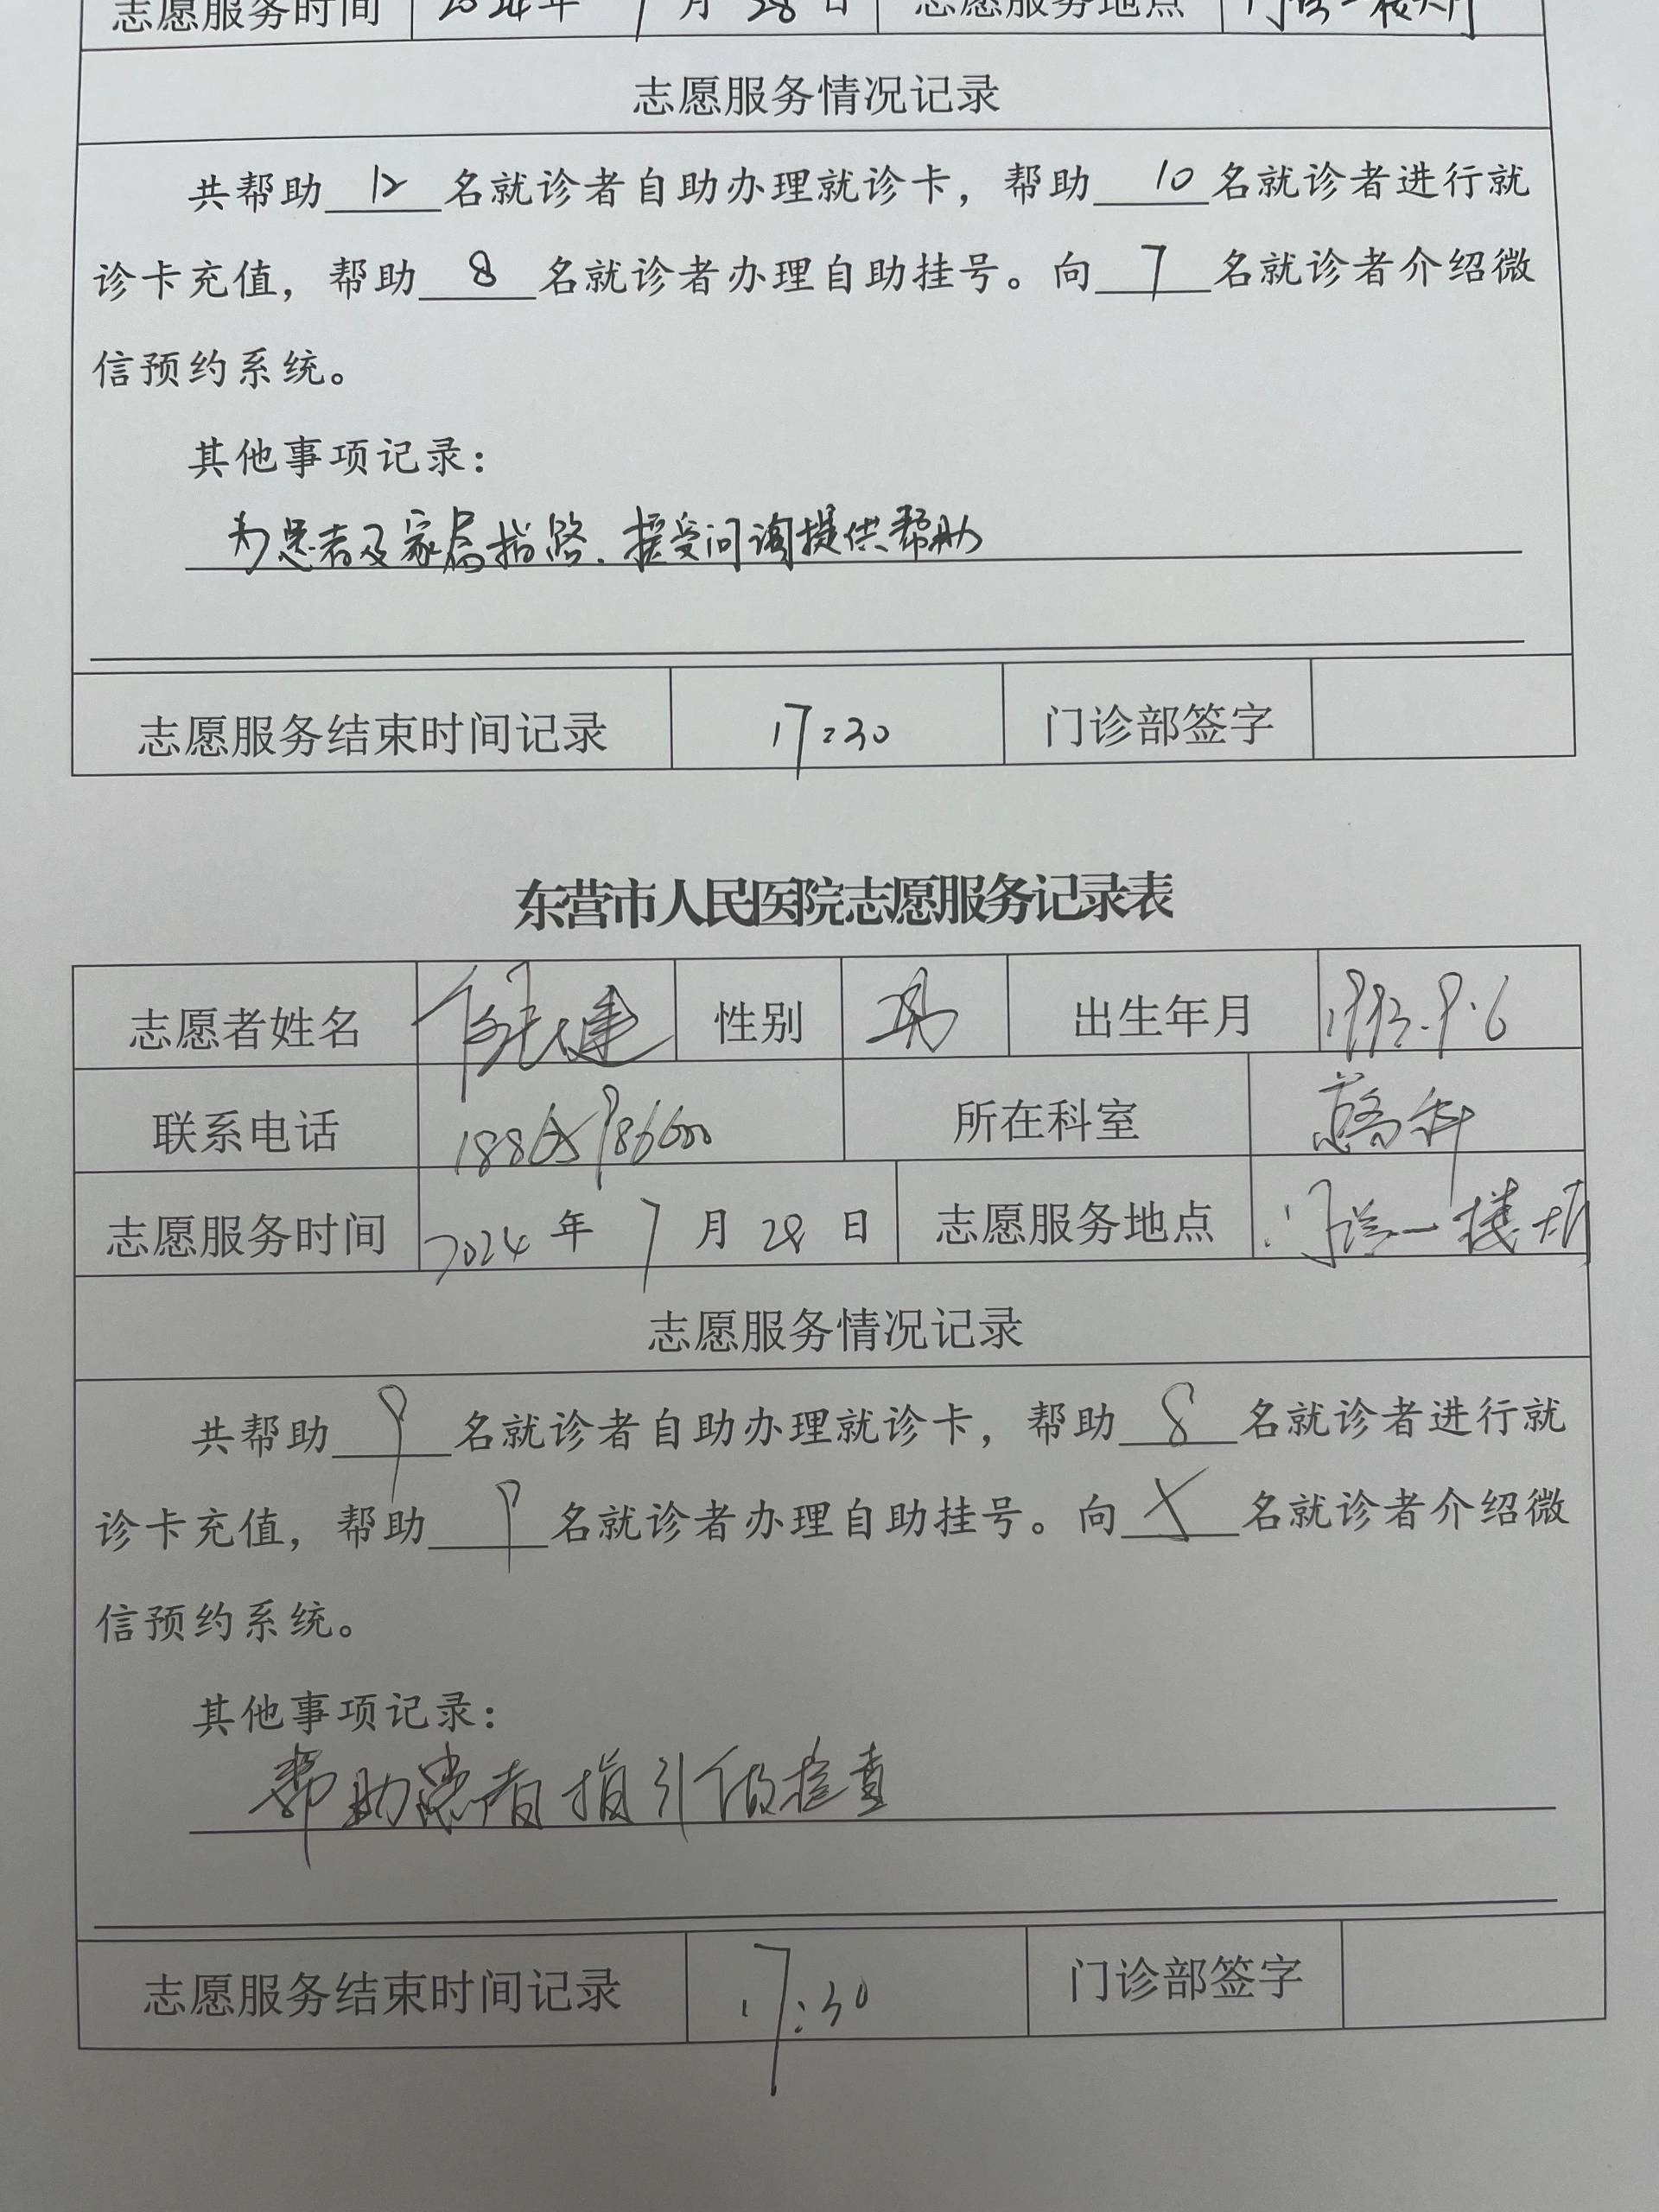 志愿服务时间 2024年 7月 28日 志愿服务地点 门诊一楼大厅
志愿服务情况记录
共帮助 12 名就诊者自助办理就诊卡，帮助 10 名就诊者进行就
诊卡充值，帮助 8 名就诊者办理自助挂号。向 7 名就诊者介绍微
信预约系统。
其他事项记录：
为患者及家属指路.接受问询提供帮助
志愿服务结束时间记录 17:30 门诊部签字
东营市人民医院志愿服务记录表
志愿者姓名 性别 男 出生年月 1993.9.6
联系电话 所在科室
志愿服务时间 2024年 7月 28日 志愿服务地点 门诊一楼大厅
志愿服务情况记录
共帮助 9 名就诊者自助办理就诊卡，帮助 8 名就诊者进行就
诊卡充值，帮助 9 名就诊者办理自助挂号。向 名就诊者介绍微
信预约系统。
其他事项记录：
帮助患者指引做检查
志愿服务结束时间记录 17:30 门诊部签字